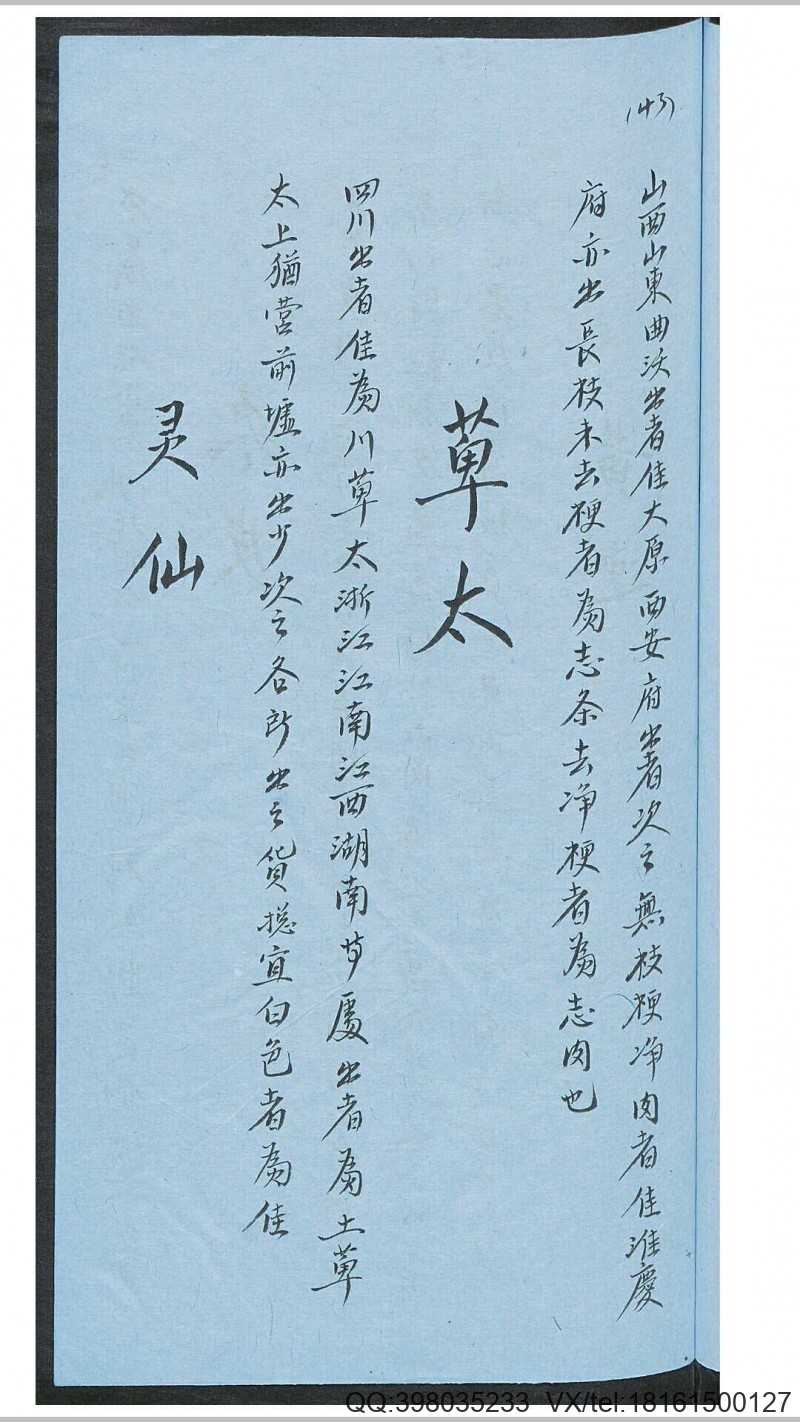 (43)
山西山東曲沃出者佳大原西安府出者次之無枝梗净肉者佳淮慶
府亦出長枝未去梗者為志条去净梗者為志肉也
萆太
四川出者佳為川萆太浙江江南江西湖南等處出者為土萆
太上猶营前墟亦出少次之各所出之貨摠宜白色者為佳
灵仙
QQ:398035233 VX/tel:18161500127